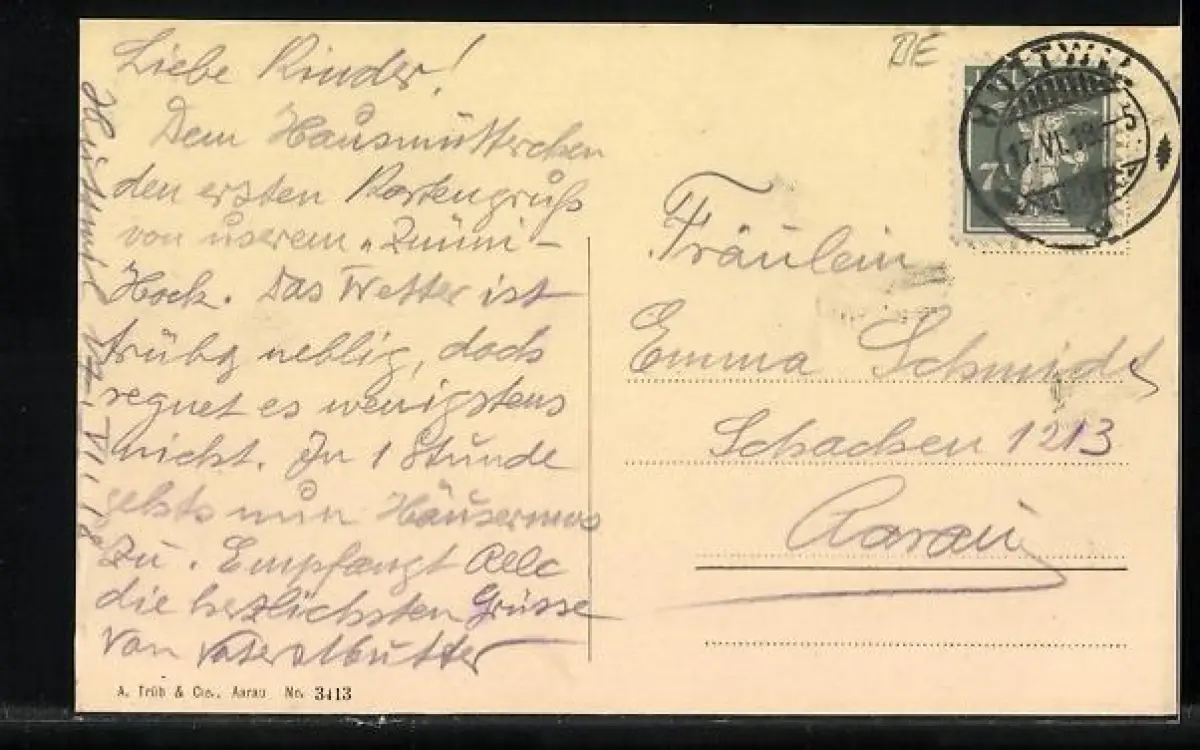 Liebe Kinder!
Dem Hausmütterchen
den ersten Kartengruß
von userem „Znüni-
Hock. Das Wetter ist
trüb, neblig, doch
regnet es wenigstens
nicht. In 1 Stunde
gehts nun Häusermoos
zu. Empfangt Alle
die herzlichsten Grüsse
von Vater & Mutter
17. VI. 18
DE
HUTTWIL
17.VI.18.–5
7½
Fräulein
Emma Schmidt
Schachen 1213
Aarau
A. Trüb & Cie., Aarau No. 3413